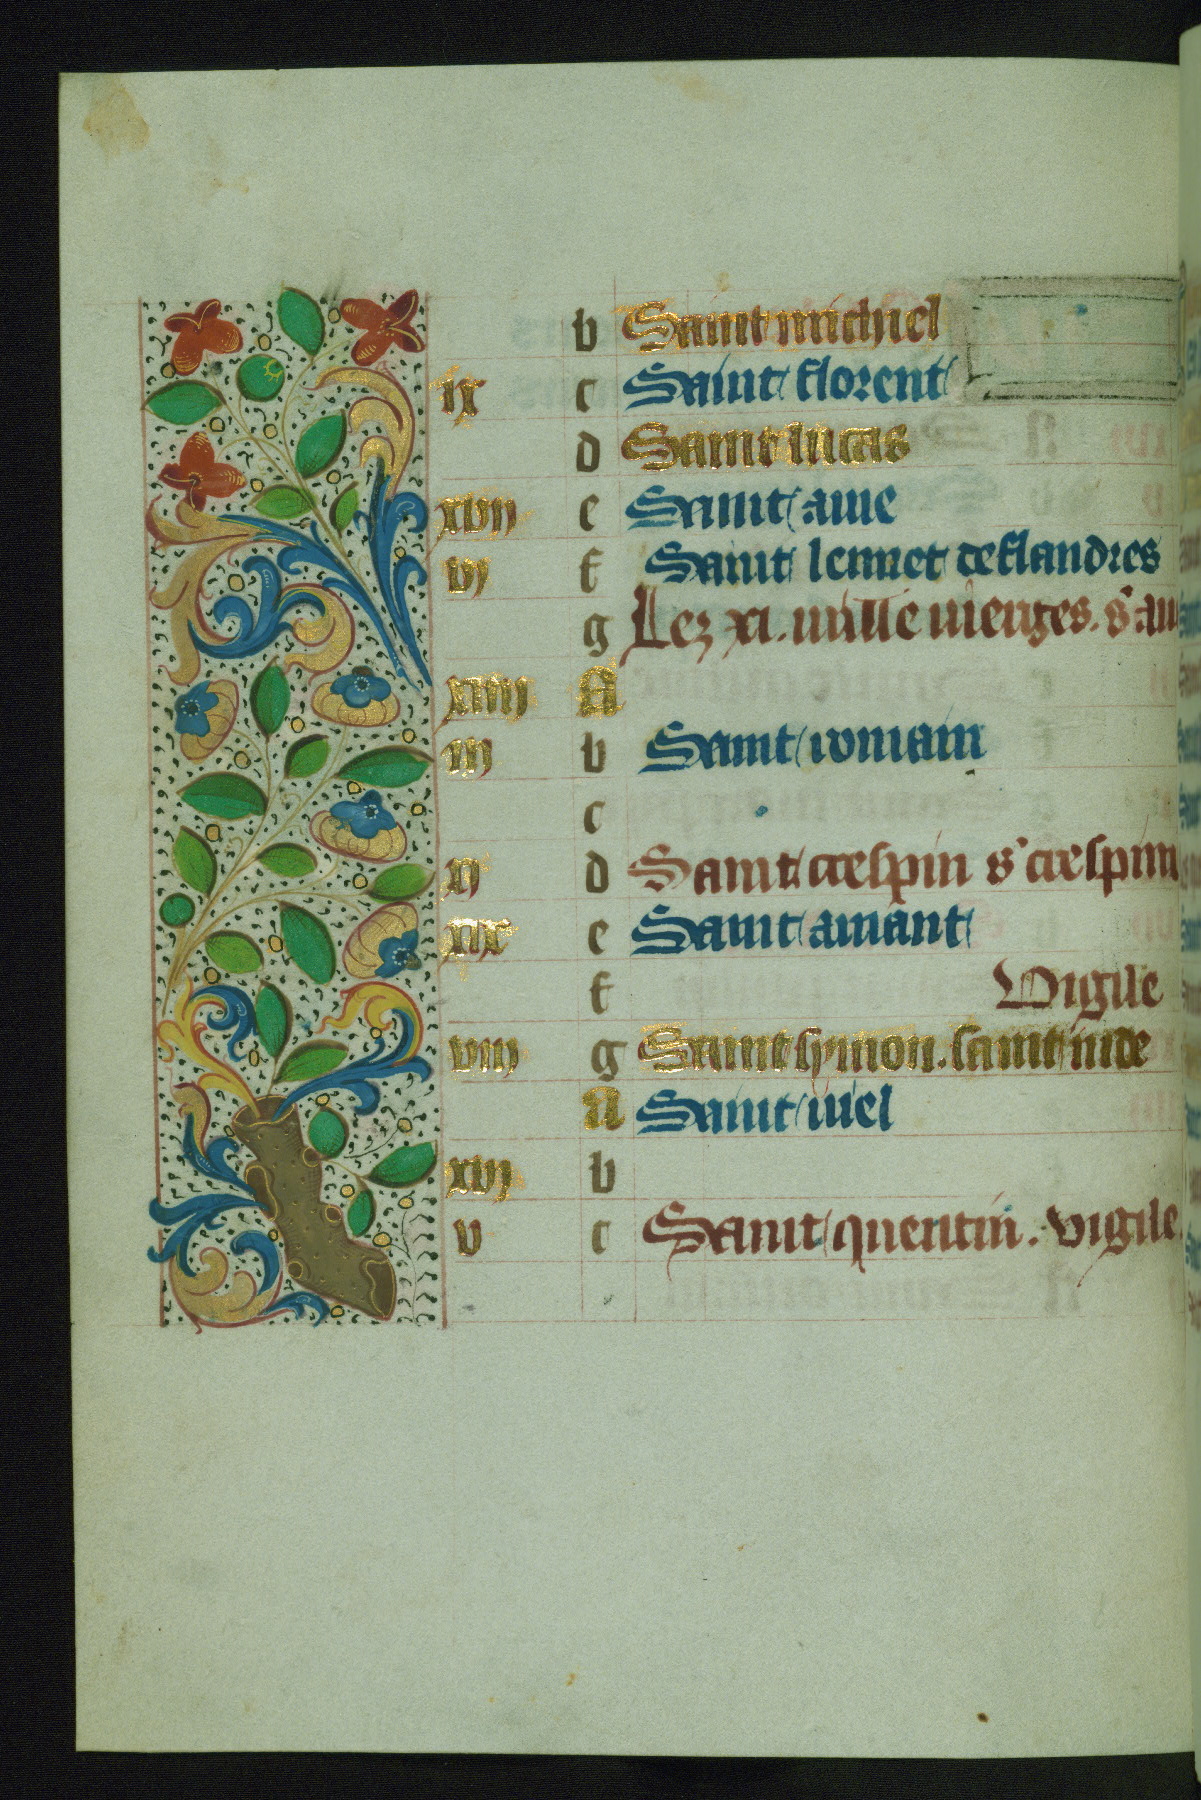 b Saint michiel
ix c Saint florent
d Saint lucas
xvij e Saint aiue
vj f Saint lenniet de flandres
g Lez xi. mille vierges. s. au
xiiij A
iij b Saint romain
c
xj d Saint crespin s' crespini
xix e Saint amant
f Vigile
viij g Saint symon. saint iude
A Saint
xvj b
v c Saint quentin. vigile